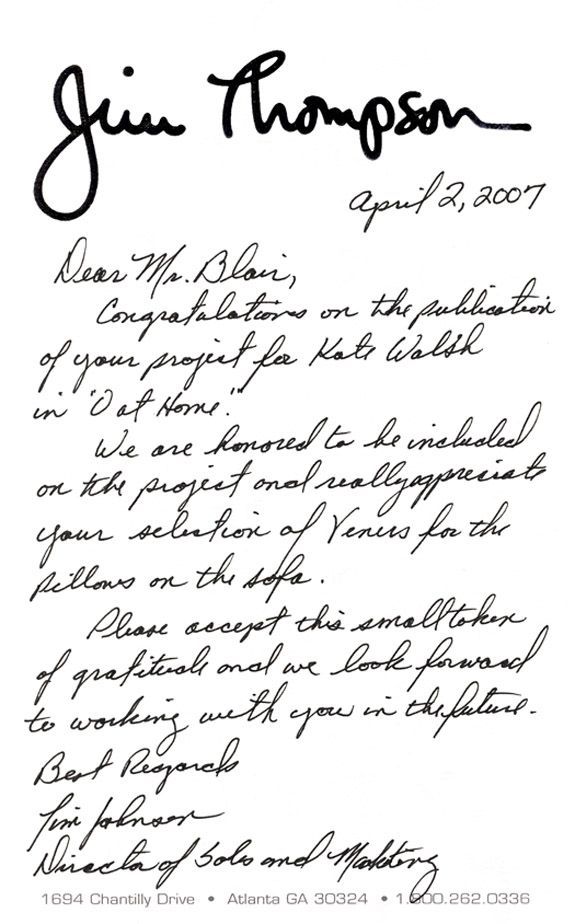 Jim Thompson
April 2, 2007
Dear Mr. Blair,
Congratulations on the publication
of your project for Kate Walsh
in "O at Home."
We are honored to be included
on the project and really appreciate
your selection of Venus for the
pillows on the sofa.
Please accept this small token
of gratitude and we look forward
to working with you in the future.
Best Regards
Tim Johnson
Director of Sales and Marketing
1694 Chantilly Drive • Atlanta GA 30324 • 1.800.262.0336